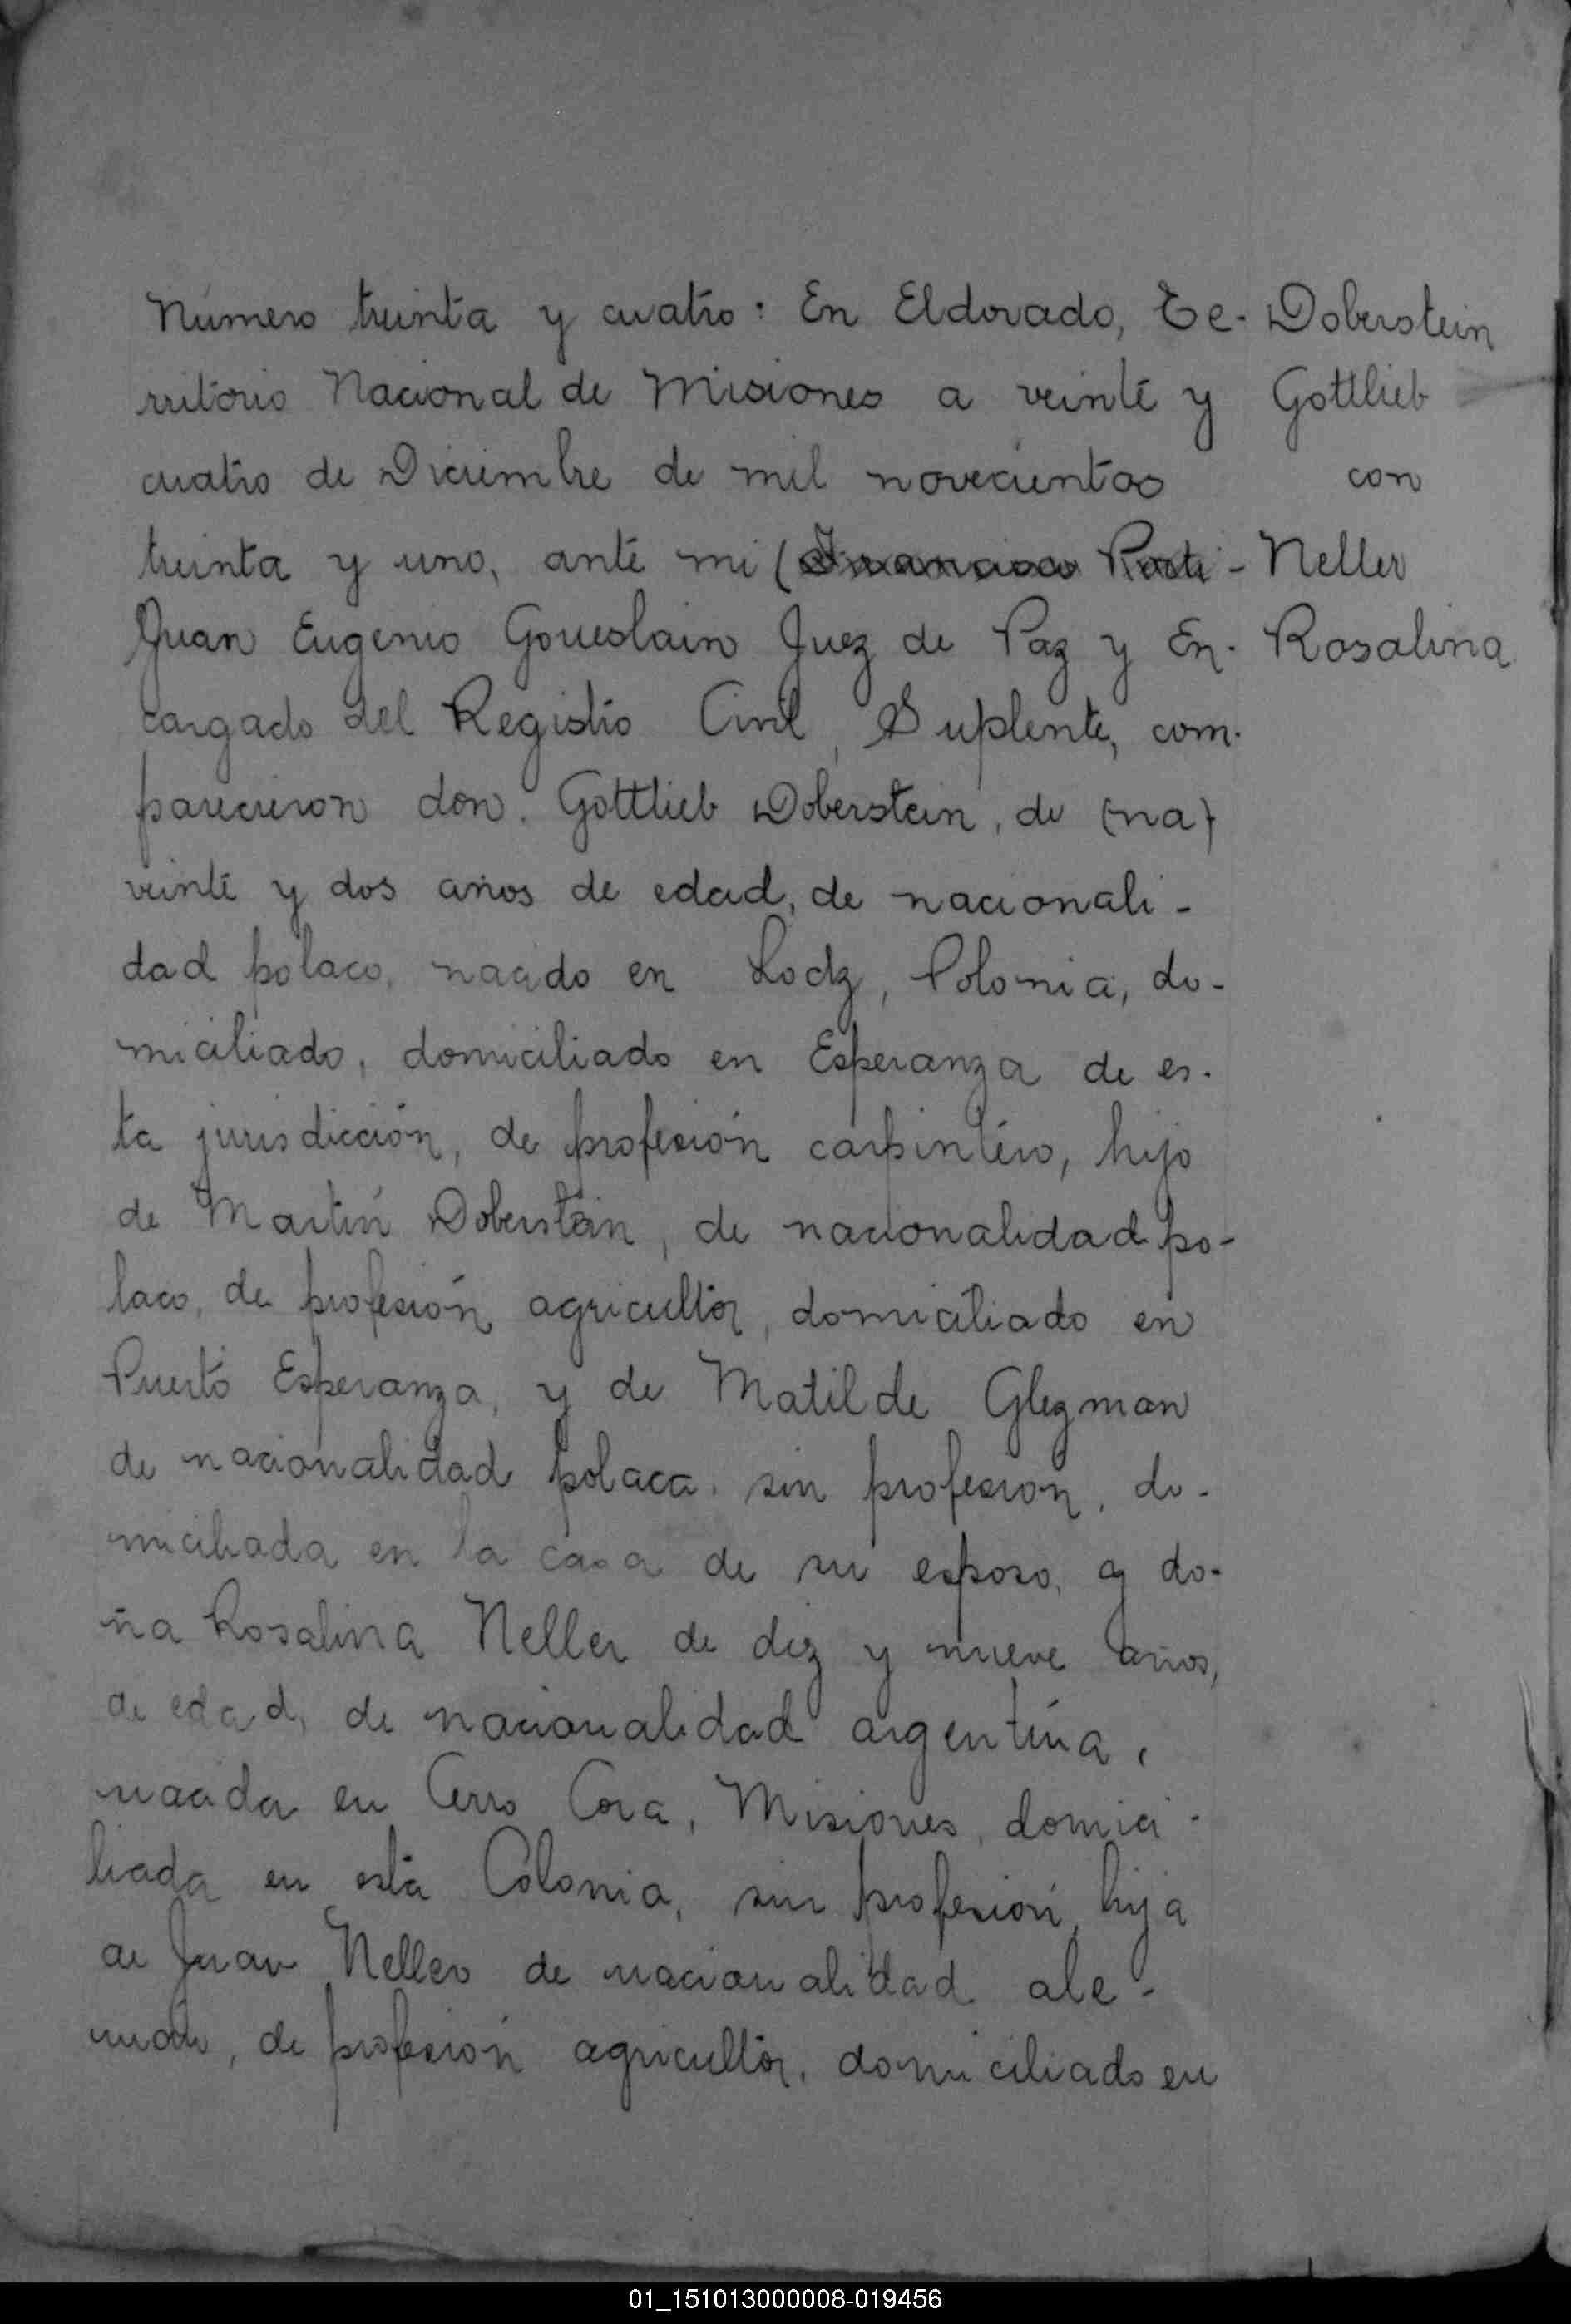 Número treinta y cuatro: En Eldorado, Te-
rritorio Nacional de Misiones a veinte y
cuatro de Diciembre de mil novecientos
treinta y uno, ante mi (
Juan Eugenio Goueslain Juez de Paz y En-
cargado del Registro Civil, Suplente, com-
parecieron don. Gottlieb Doberstein, de (na)
veinte y dos años de edad, de nacionali-
dad polaco, nacido en Lodz, Polonia, do-
miciliado, domiciliado en Esperanza de es-
ta jurisdicción, de profesión carpintero, hijo
de Martín Doberstein, de nacionalidad po-
laco, de profesión agricultor, domiciliado en
Puerto Esperanza, y de Matilde Glezman
de nacionalidad polaca, sin profesion, do-
miciliada en la casa de su esposo, y do-
ña Rosalina Neller de diez y nueve años,
de edad, de nacionalidad argentina,
nacida en Cerro Cora, Misiones, domici-
liada en esta Colonia, sin profesión, hija
de Juan Neller de nacionalidad ale-
mán, de profesión agricultor, domiciliado en
Doberstein
Gottlieb
con
Neller
Rosalina
01_151013000008-019456